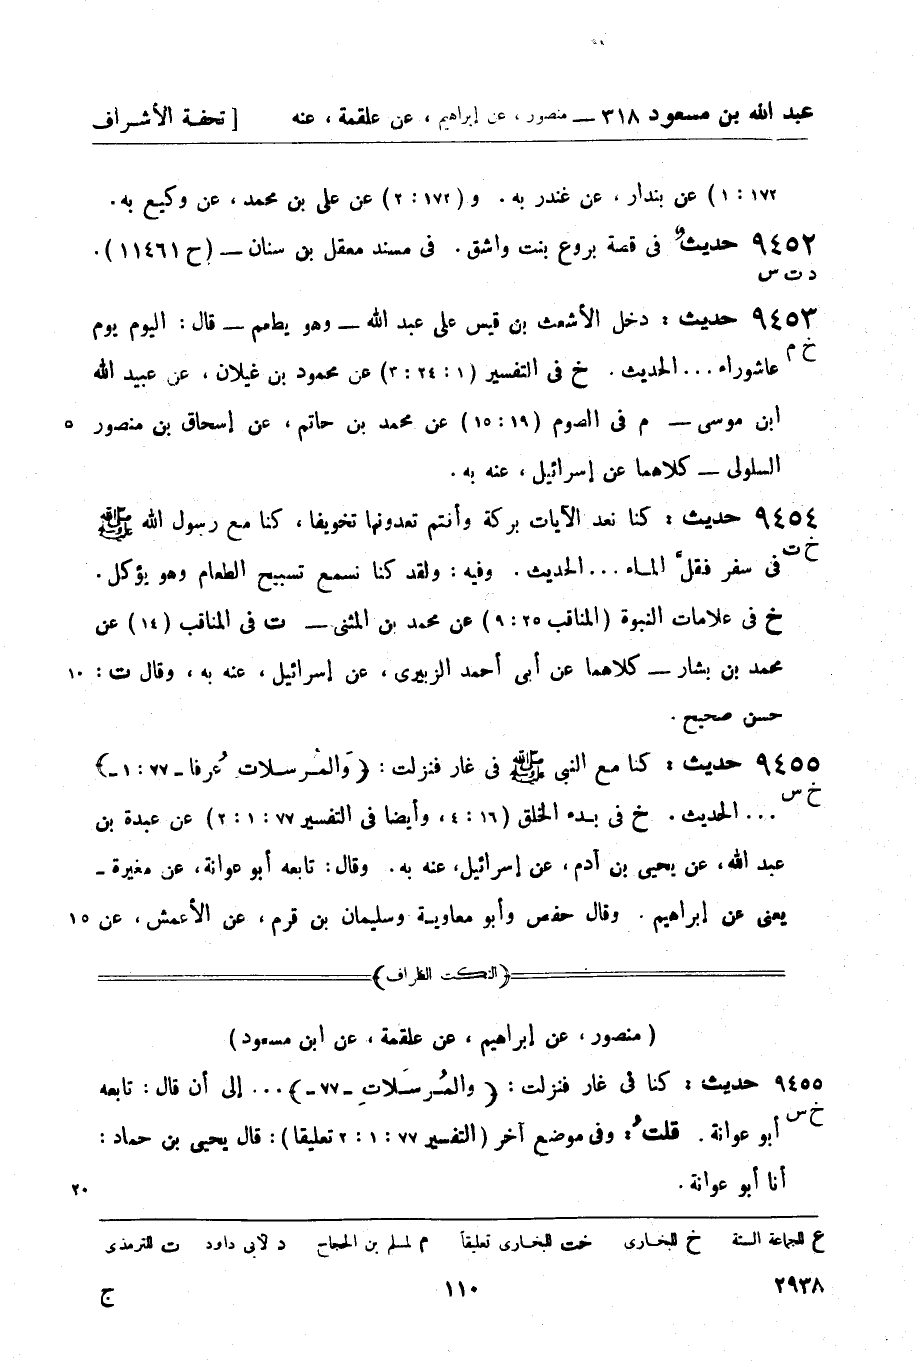 عبد الله بن مسعود ٣١٨ — منصور، عن إبراهيم، عن علقمة، عنه [ تحفة الأشراف
١٧٢ : ١) عن بندار، عن غندر به. و (١٧٢ : ٢) عن على بن محمد، عن وكيع به.
٩٤٥٢ حديث فى قصة بروع بنت واشق. فى مسند معقل بن سنان — (ح ١١٤٦١).
د ت س
٩٤٥٣ حديث : دخل الأشعث بن قيس على عبد الله — وهو يطعم — قال : اليوم يوم
خ م
عاشوراء ... الحديث. خ فى التفسير (١ : ٢٤ : ٣) عن محمود بن غيلان، عن عبيد الله
ابن موسى — م فى الصوم (١٩ : ١٥) عن محمد بن حاتم، عن إسحاق بن منصور ٥
السلولى — كلاهما عن إسرائيل، عنه به.
٩٤٥٤ حديث : كنا نعد الآيات بركة وأنتم تعدونها تخويفا، كنا مع رسول الله ﷺ
خ ت
فى سفر فقلّ الماء ... الحديث. وفيه : ولقد كنا نسمع تسبيح الطعام وهو يؤكل.
خ فى علامات النبوة (المناقب ٢٥ : ٩) عن محمد بن المثنى — ت فى المناقب (١٤) عن
محمد بن بشار — كلاهما عن أبى أحمد الزبيرى، عن إسرائيل، عنه به، وقال ت : ١٠
حسن صحيح.
٩٤٥٥ حديث : كنا مع النبى ﷺ فى غار فنزلت : ﴿وَالمُرسلات عُرفا - ٧٧ : ١ -﴾
خ س
... الحديث. خ فى بدء الخلق (١٦ : ٤، وأيضا فى التفسير ٧٧ : ١ : ٢) عن عبدة بن
عبد الله، عن يحيى بن آدم، عن إسرائيل، عنه به. وقال : تابعه أبو عوانة، عن مغيرة -
يعنى عن إبراهيم. وقال حفص وأبو معاوية وسليمان بن قرم، عن الأعمش، عن ١٥
﴿النكت الظراف﴾
(منصور، عن إبراهيم، عن علقمة، عن ابن مسعود)
٩٤٥٥ حديث : كنا فى غار فنزلت : ﴿والمُرسَلاتِ - ٧٧ -﴾ ... إلى أن قال : تابعه
خ س
أبو عوانة. قلتُ : وفى موضع آخر (التفسير ٧٧ : ١ : ٢ تعليقا) : قال يحيى بن حماد :
أنا أبو عوانة. ٢٠
ع للجماعة الستة خ للبخارى خت للبخارى تعليقاً م لمسلم بن الحجاج د لأبى داود ت للترمذى
٢٩٣٨ ١١٠ ج